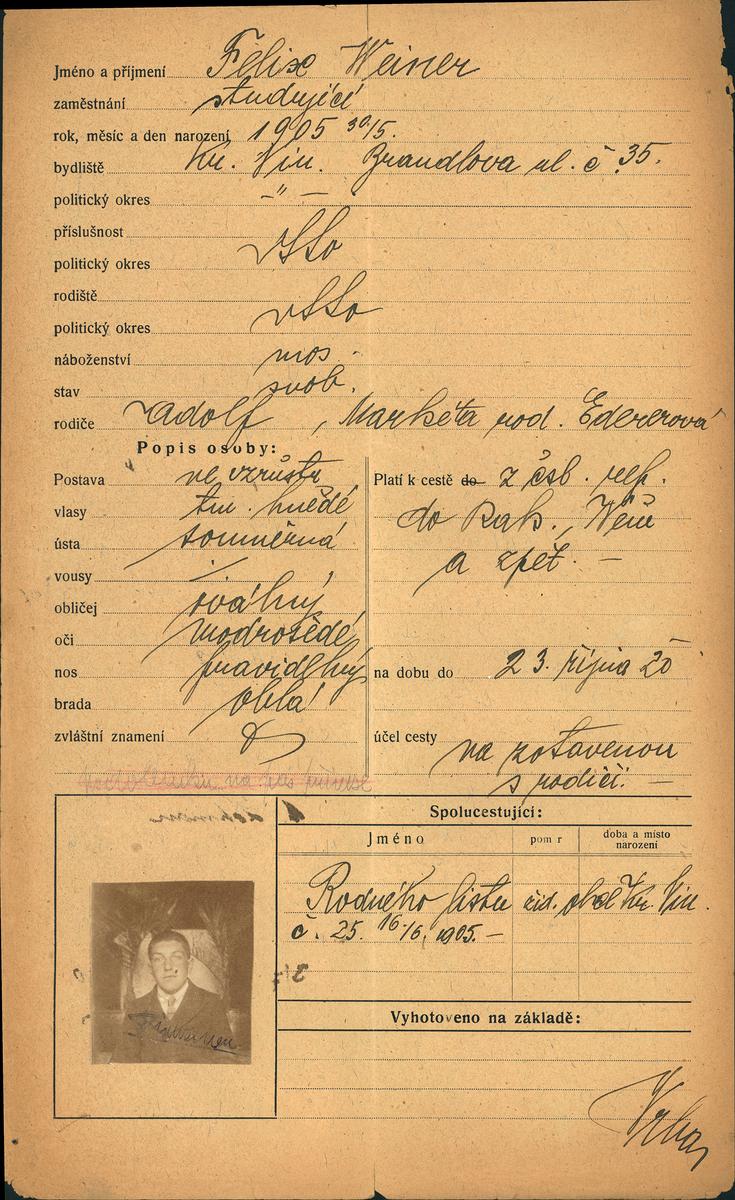 Jméno a příjmení Felix Weiner
zaměstnání studující
rok, měsíc a den narození 1905 30/5.
bydliště Kr. Vin. Brandlova ul. č. 35.
politický okres -"-
příslušnost
politický okres
rodiště
politický okres
náboženství mos.
stav svob.
rodiče Adolf, Markéta roz. Edererová
Popis osoby:
Postava ve vzrůstu
vlasy tm. hnědé
ústa souměrná
vousy ./.
obličej oválný
oči modrošedé
nos pravidelný
brada oblá
zvláštní znamení
Platí k cestě do z čsl. rep.
do Rak., Věm
a zpět. —
na dobu do 23. října 20
účel cesty na zotavenou
s rodiči. —
Spolucestující:
Jméno pom r doba a místo
narození
Rodného listu žid. obce Kr. Vin.
č. 25. 16/6. 1905. —
Vyhotoveno na základě:
Vrba